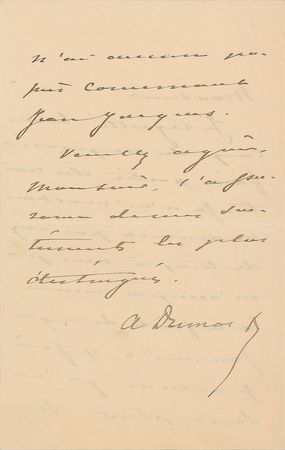 n'ai aucun pa-
pier concernant
Jean Jacques.
Veuillez agréer,
Monsieur, l'assu-
rance de mes sen-
timents les plus
distingués.
A Dumas